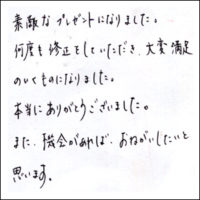 素敵なプレゼントになりました。
何度も修正をしていただき、大変満足
のいくものになりました。
本当にありがとうございました。
また、機会があれば、おねがいしたいと
思います。